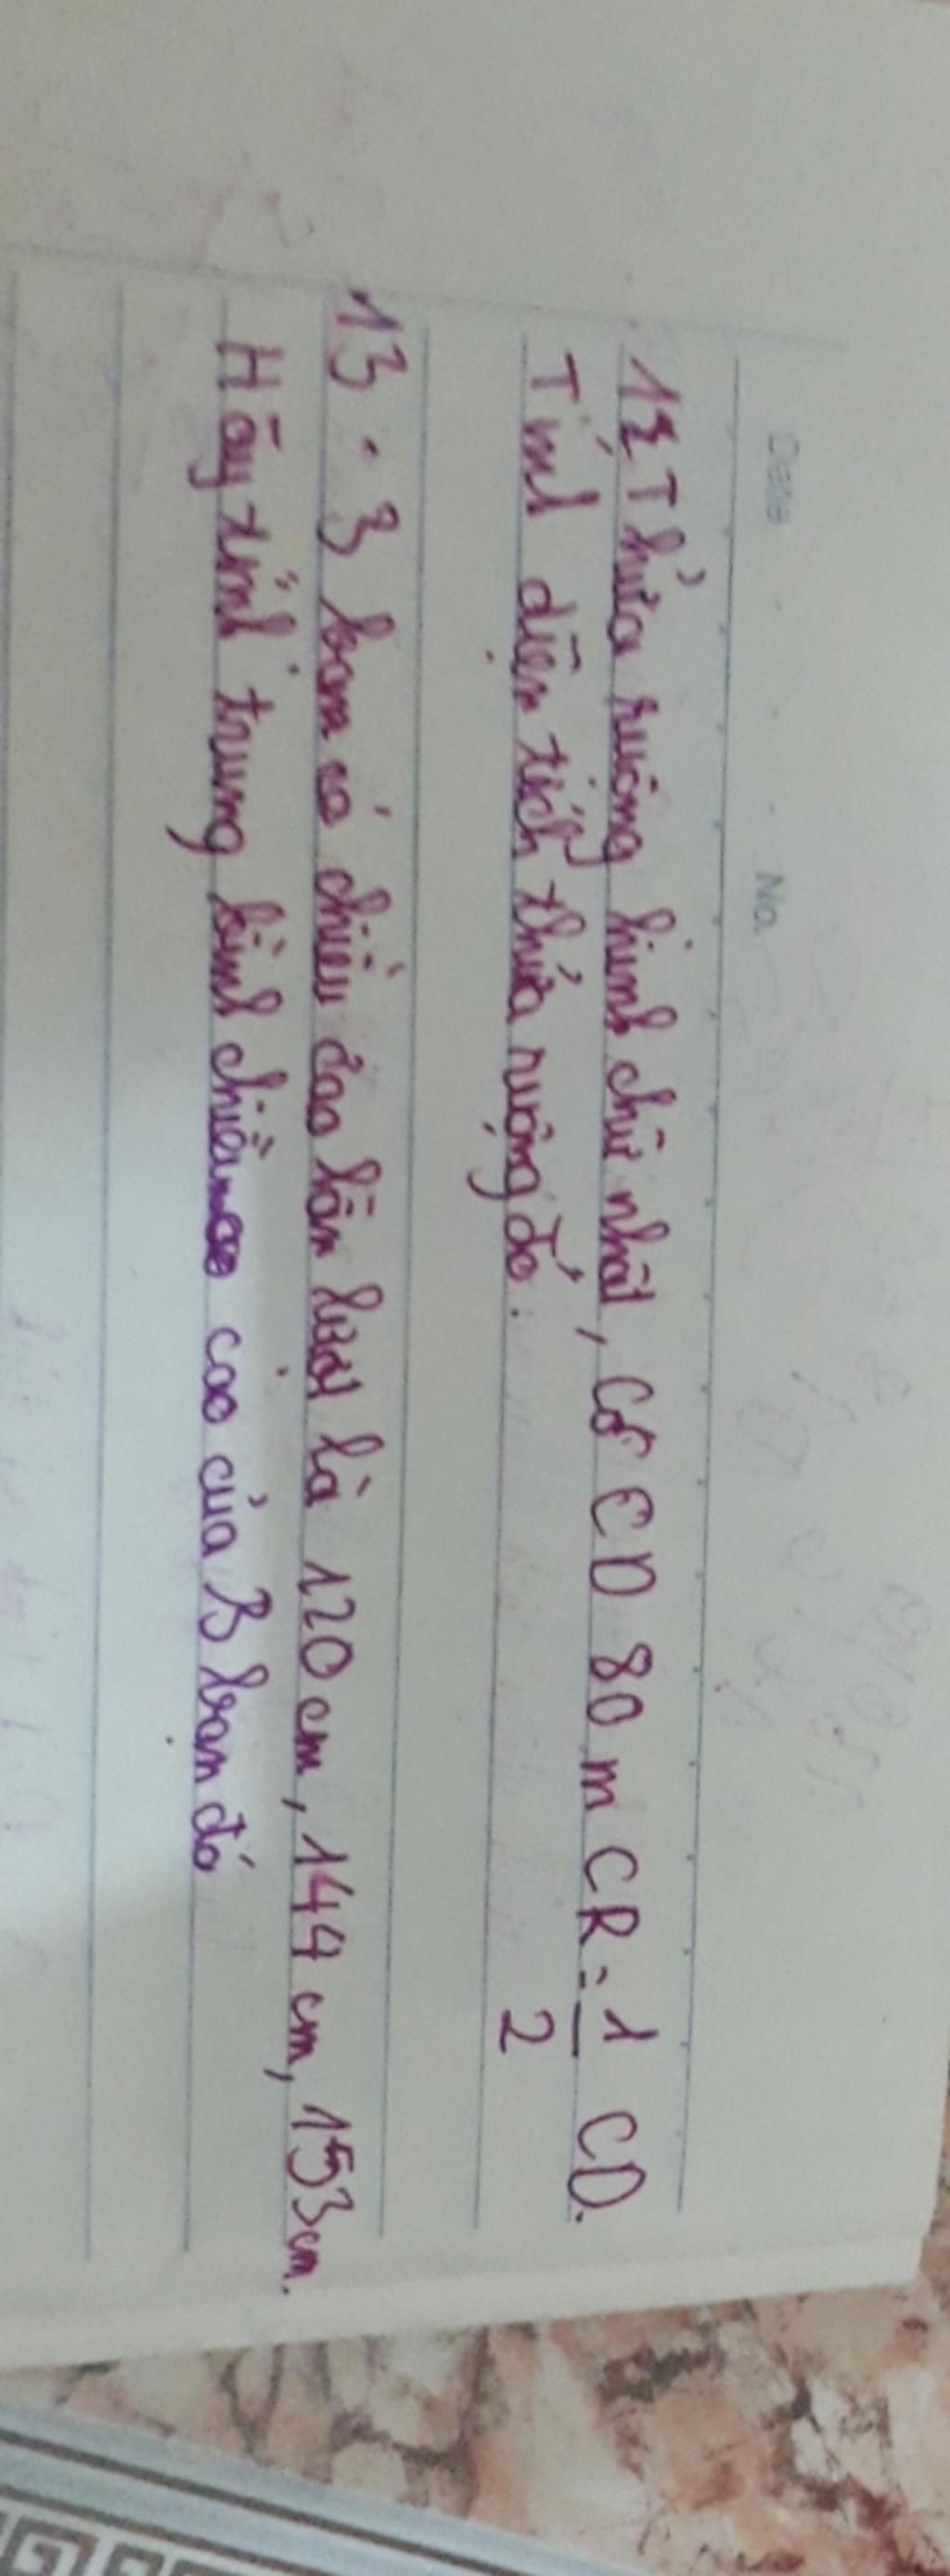 Date No.
12 Thửa ruộng hình chữ nhật, Có CD 80 m CR = 1/2 CD.
Tính diện tích thửa ruộng đó.
13. 3 bạn có chiều cao lần lượt là 120 cm, 144 cm, 153 cm.
Hãy tính trung bình chiều cao của 3 bạn đó